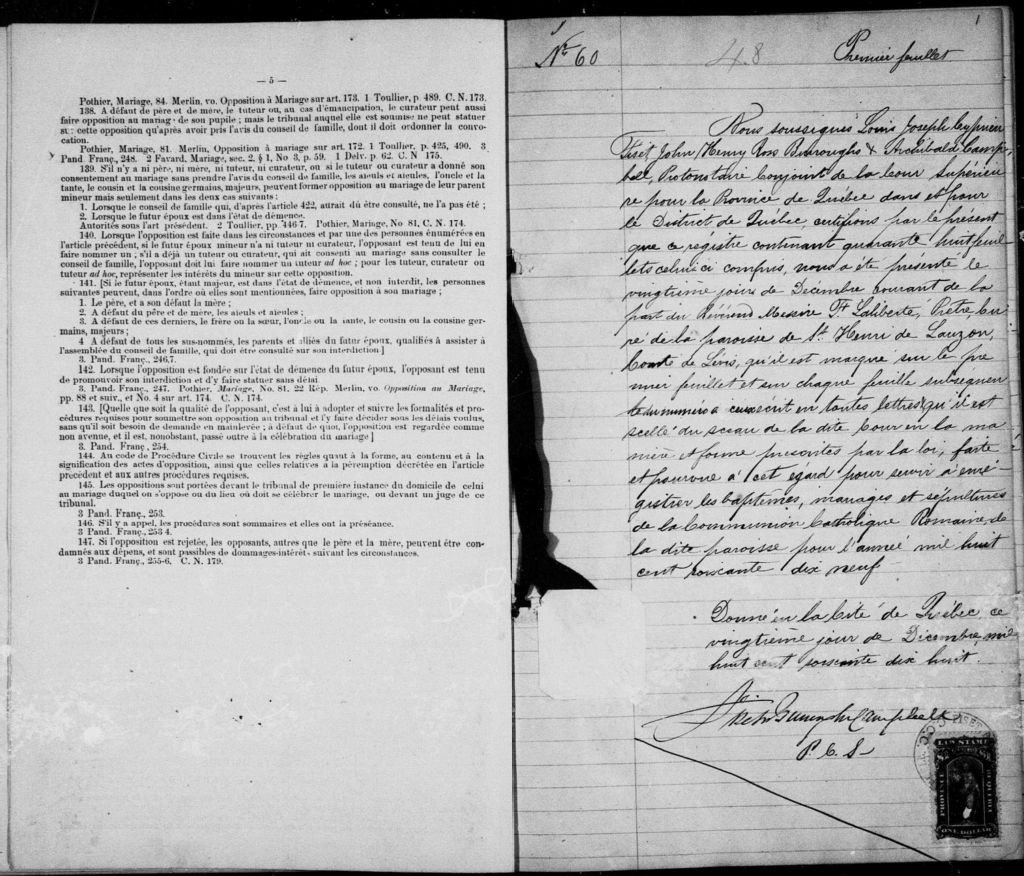 — 5 —
Pothier, Mariage, 84. Merlin, vo. Opposition à Mariage sur art. 173. 1 Toullier, p. 489. C. N. 173.
138. A défaut de père et de mère, le tuteur ou, au cas d'émancipation, le curateur peut aussi
faire opposition au mariage de son pupile ; mais le tribunal auquel elle est soumise ne peut statuer
sur cette opposition qu'après avoir pris l'avis du conseil de famille, dont il doit ordonner la convo-
cation.
Pothier, Mariage, 81. Merlin, Opposition à mariage sur art. 172. 1 Toullier, p. 425, 490. 3
Pand. Franç., 248. 2 Favard, Mariage, sec. 2, § 1, No 3, p. 59. 1 Delv. p. 62. C. N 175.
139. S'il n'y a ni père, ni mère, ni tuteur, ni curateur, ou si le tuteur ou curateur a donné son
consentement au mariage sans prendre l'avis du conseil de famille, les aïeuls et aïeules, l'oncle et la
tante, le cousin et la cousine germains, majeurs, peuvent former opposition au mariage de leur parent
mineur mais seulement dans les deux cas suivants :
1. Lorsque le conseil de famille qui, d'après l'article 422, aurait dû être consulté, ne l'a pas été ;
2. Lorsque le futur époux est dans l'état de démence.
Autorités sous l'art précédent. 2 Toullier, pp. 446 7. Pothier, Mariage, No 81, C. N. 174.
140. Lorsque l'opposition est faite dans les circonstances et par une des personnes énumérées en
l'article précédent, si le futur époux mineur n'a ni tuteur ni curateur, l'opposant est tenu de lui en
faire nommer un ; s'il a déjà un tuteur ou curateur, qui ait consenti au mariage sans consulter le
conseil de famille, l'opposant doit lui faire nommer un tuteur ad hoc ; pour les tuteur, curateur ou
tuteur ad hoc, représenter les intérêts du mineur sur cette opposition.
141. [Si le futur époux, étant majeur, est dans l'état de démence, et non interdit, les personnes
suivantes peuvent, dans l'ordre où elles sont mentionnées, faire opposition à son mariage ;
1. Le père, et a son défaut la mère ;
2. A défaut du père et de mère, les aïeuls et aïeules ;
3. A défaut de ces derniers, le frère ou la sœur, l'oncle ou la tante, le cousin ou la cousine ger-
mains, majeurs ;
4 A défaut de tous les sus-nommés, les parents et alliés du futur époux, qualifiés à assister à
l'assemblée du conseil de famille, qui doit être consulté sur son interdiction ]
3. Pand. Franç., 246,7.
142. Lorsque l'opposition est fondée sur l'état de démence du futur époux, l'opposant est tenu
de promouvoir son interdiction et d'y faire statuer sans délai
3. Pand. Franç., 247. Pothier, Mariage, No. 81. 22 Rép. Merlin, vo. Opposition au Mariage,
pp. 88 et suiv., et No. 4 sur art. 174. C. N. 174.
143. [Quelle que soit la qualité de l'opposant, c'est à lui à adopter et suivre les formalités et pro-
cédures requises pour soumettre son opposition au tribunal et l'y faire décider sous les délais voulus,
sans qu'il soit besoin de demande en mainlevée ; à défaut de quoi, l'opposition est regardée comme
non avenue, et il est, nonobstant, passé outre à la célébration du mariage ]
3. Pand. Franç., 254.
144. Au code de Procédure Civile se trouvent les règles quant à la forme, au contenu et à la
signification des actes d'opposition, ainsi que celles relatives à la péremption décrétée en l'article
précédent et aux autres procédures requises.
145. Les oppositions sont portées devant le tribunal de première instance du domicile de celui
au mariage duquel on s'oppose ou du lieu où doit se célébrer le mariage, ou devant un juge de ce
tribunal.
3 Pand. Franç., 253.
146. S'il y a appel, les procédures sont sommaires et elles ont la préséance.
3 Pand. Franç., 253 4.
147. Si l'opposition est rejetée, les opposants, autres que le père et la mère, peuvent être con-
damnés aux dépens, et sont passibles de dommages-intérêts suivant les circonstances.
3 Pand. Franç., 255-6. C. N. 179.
1
No 60
48
Premier feuillet
Nous soussignés Louis Joseph Cyprien
Fiset, John Henry Ross Burroughs & Archibald Camp-
bell, Protonotaire Conjoint de la Cour Supérieu
re pour la Province de Québec dans et pour
le District de Québec certifions par le présent
que ce registre contenant quarante huit feuil
lets celui ci compris, nous a été présenté le
vingtième jour de Décembre courant de la
part du Révérend Messire Laliberté, Prêtre Cu
ré de la paroisse de St. Henri de Lauzon,
Comté de Lévis, qu'il est marqué sur le pre
mier feuillet et sur chaque feuille subséquen
te du numéro écrit en toutes lettres, qu'il est
scellé du sceau de la dite Cour en la ma
nière et forme prescrites par la loi, faite
et pourvue à cet égard pour servir à enre
gistrer les baptêmes, mariages et sépultures
de la Communion Catholique Romaine, de
la dite paroisse pour l'année mil huit
cent soixante dix neuf
Donné en la Cité de Québec ce
vingtième jour de Décembre, mil
huit cent soixante dix huit.
Campbell
P. C. S
FISET
LAW STAMP
PROVINCE
QUEBEC
ONE DOLLAR